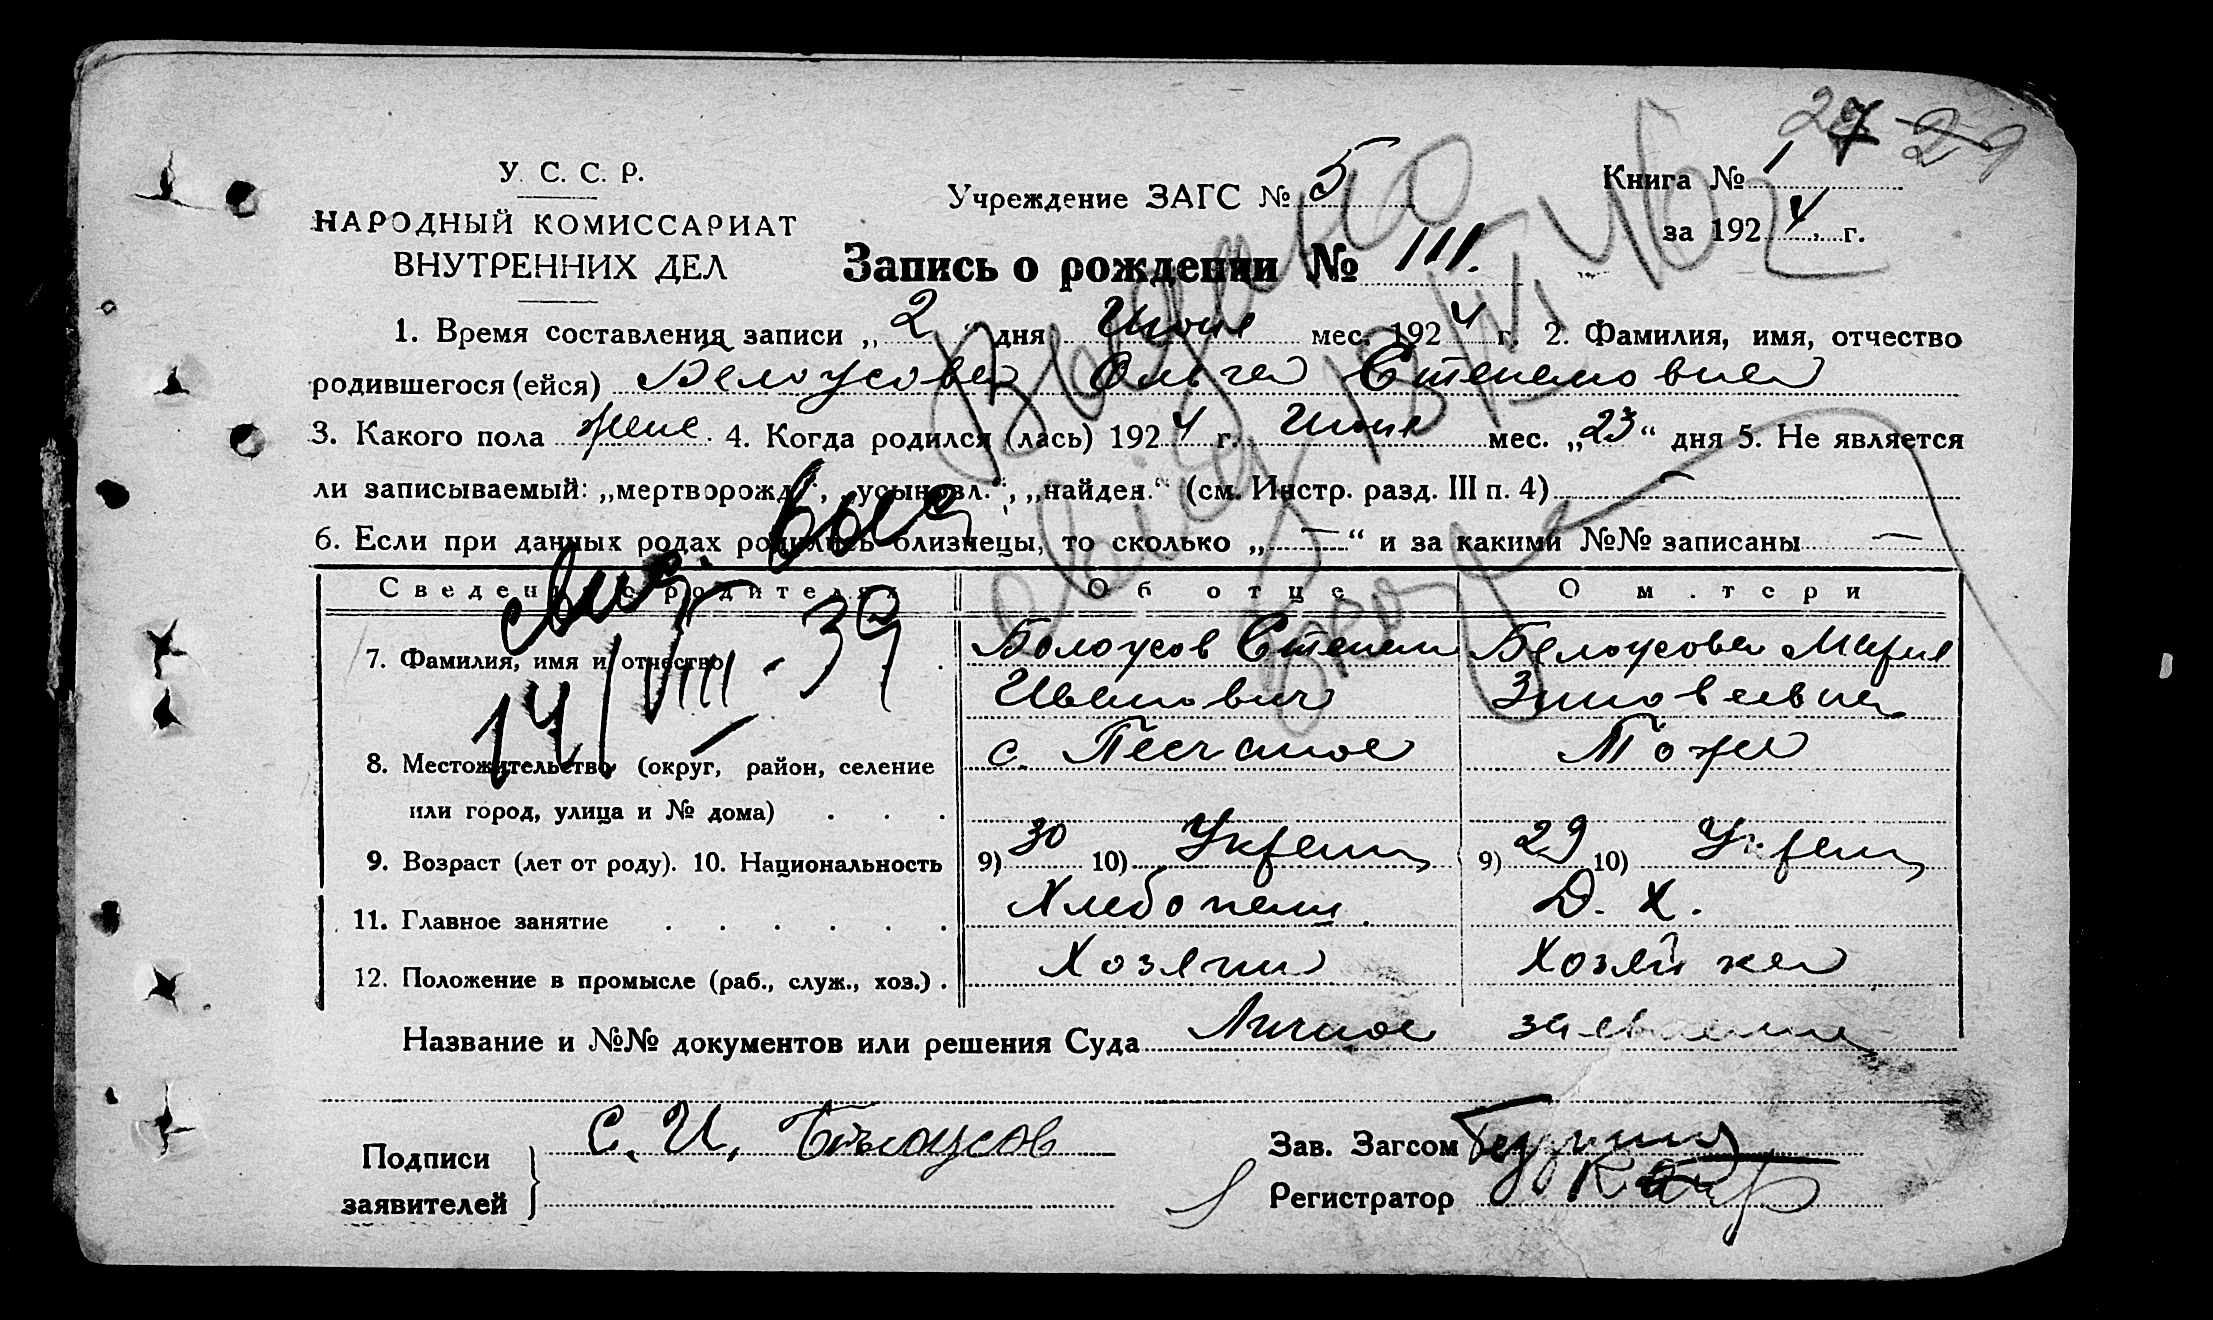 27 29
У. С. С. Р.
НАРОДНЫЙ КОМИССАРИАТ
ВНУТРЕННИХ ДЕЛ
Учреждение ЗАГС № 5
Книга № 1
за 1924 г.
Запись о рождении № 111.
1. Время составления записи „2“ дня Июня мес. 1924 г. 2. Фамилия, имя, отчество
родившегося (ейся) Белоусова Ольга Степановна
3. Какого пола жен. 4. Когда родился (лась) 1924 г. Июня мес. „23“ дня 5. Не является
ли записываемый: „мертворожд.“, „усыновл.“, „найден.“ (см. Инстр. разд. III п. 4) —
6. Если при данных родах родились близнецы, то сколько „—“ и за какими №№ записаны —
Выдано
14/VIII-39
Сведения о родителях Об отце О м.тери
7. Фамилия, имя и отчество Белоусов Степан Белоусова Мария
Иванович Зиновеевна
8. Местожительство (округ, район, селение с. Песчаное Тоже
или город, улица и № дома) . . .
9. Возраст (лет от роду). 10. Национальность 9) 30 10) Украин 9) 29 10) Украин
11. Главное занятие . . . . . . Хлебопаш. Д. Х.
12. Положение в промысле (раб., служ., хоз.) . Хозяин Хозяйка
Название и №№ документов или решения Суда Личное заявление
Подписи С. И. Белоусов
заявителей
Зав. Загсом
Регистратор